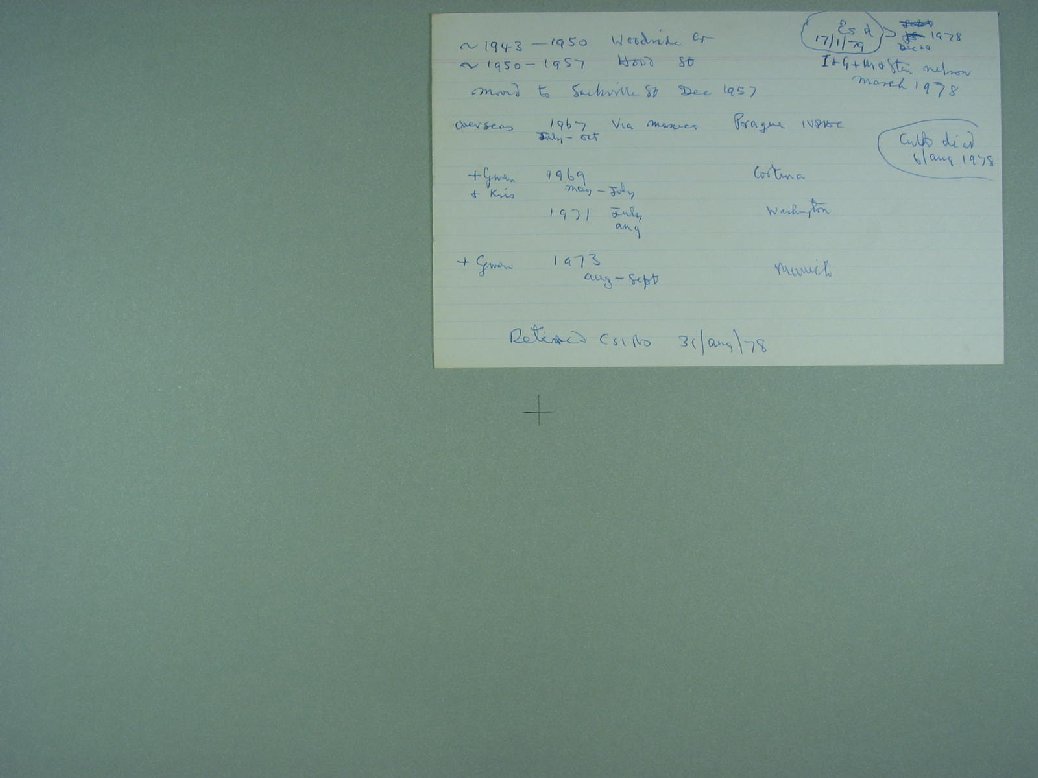 ~ 1943 – 1950 Woodside Gr
~ 1950 – 1957 Wood St
moved to Sackville St Dec 1957
Es d
17/1/79
1978
Dec
I + G +
nelson
march 1978
overseas 1967 via Prague
July – oct
Cuth died
6/aug 1978
+ Gwen 1969 Cortina
+ Kris may – July
1971 July Washington
aug
+ Gwen 1973 Munich
aug – Sept
Retired CSIRO 31/aug/78